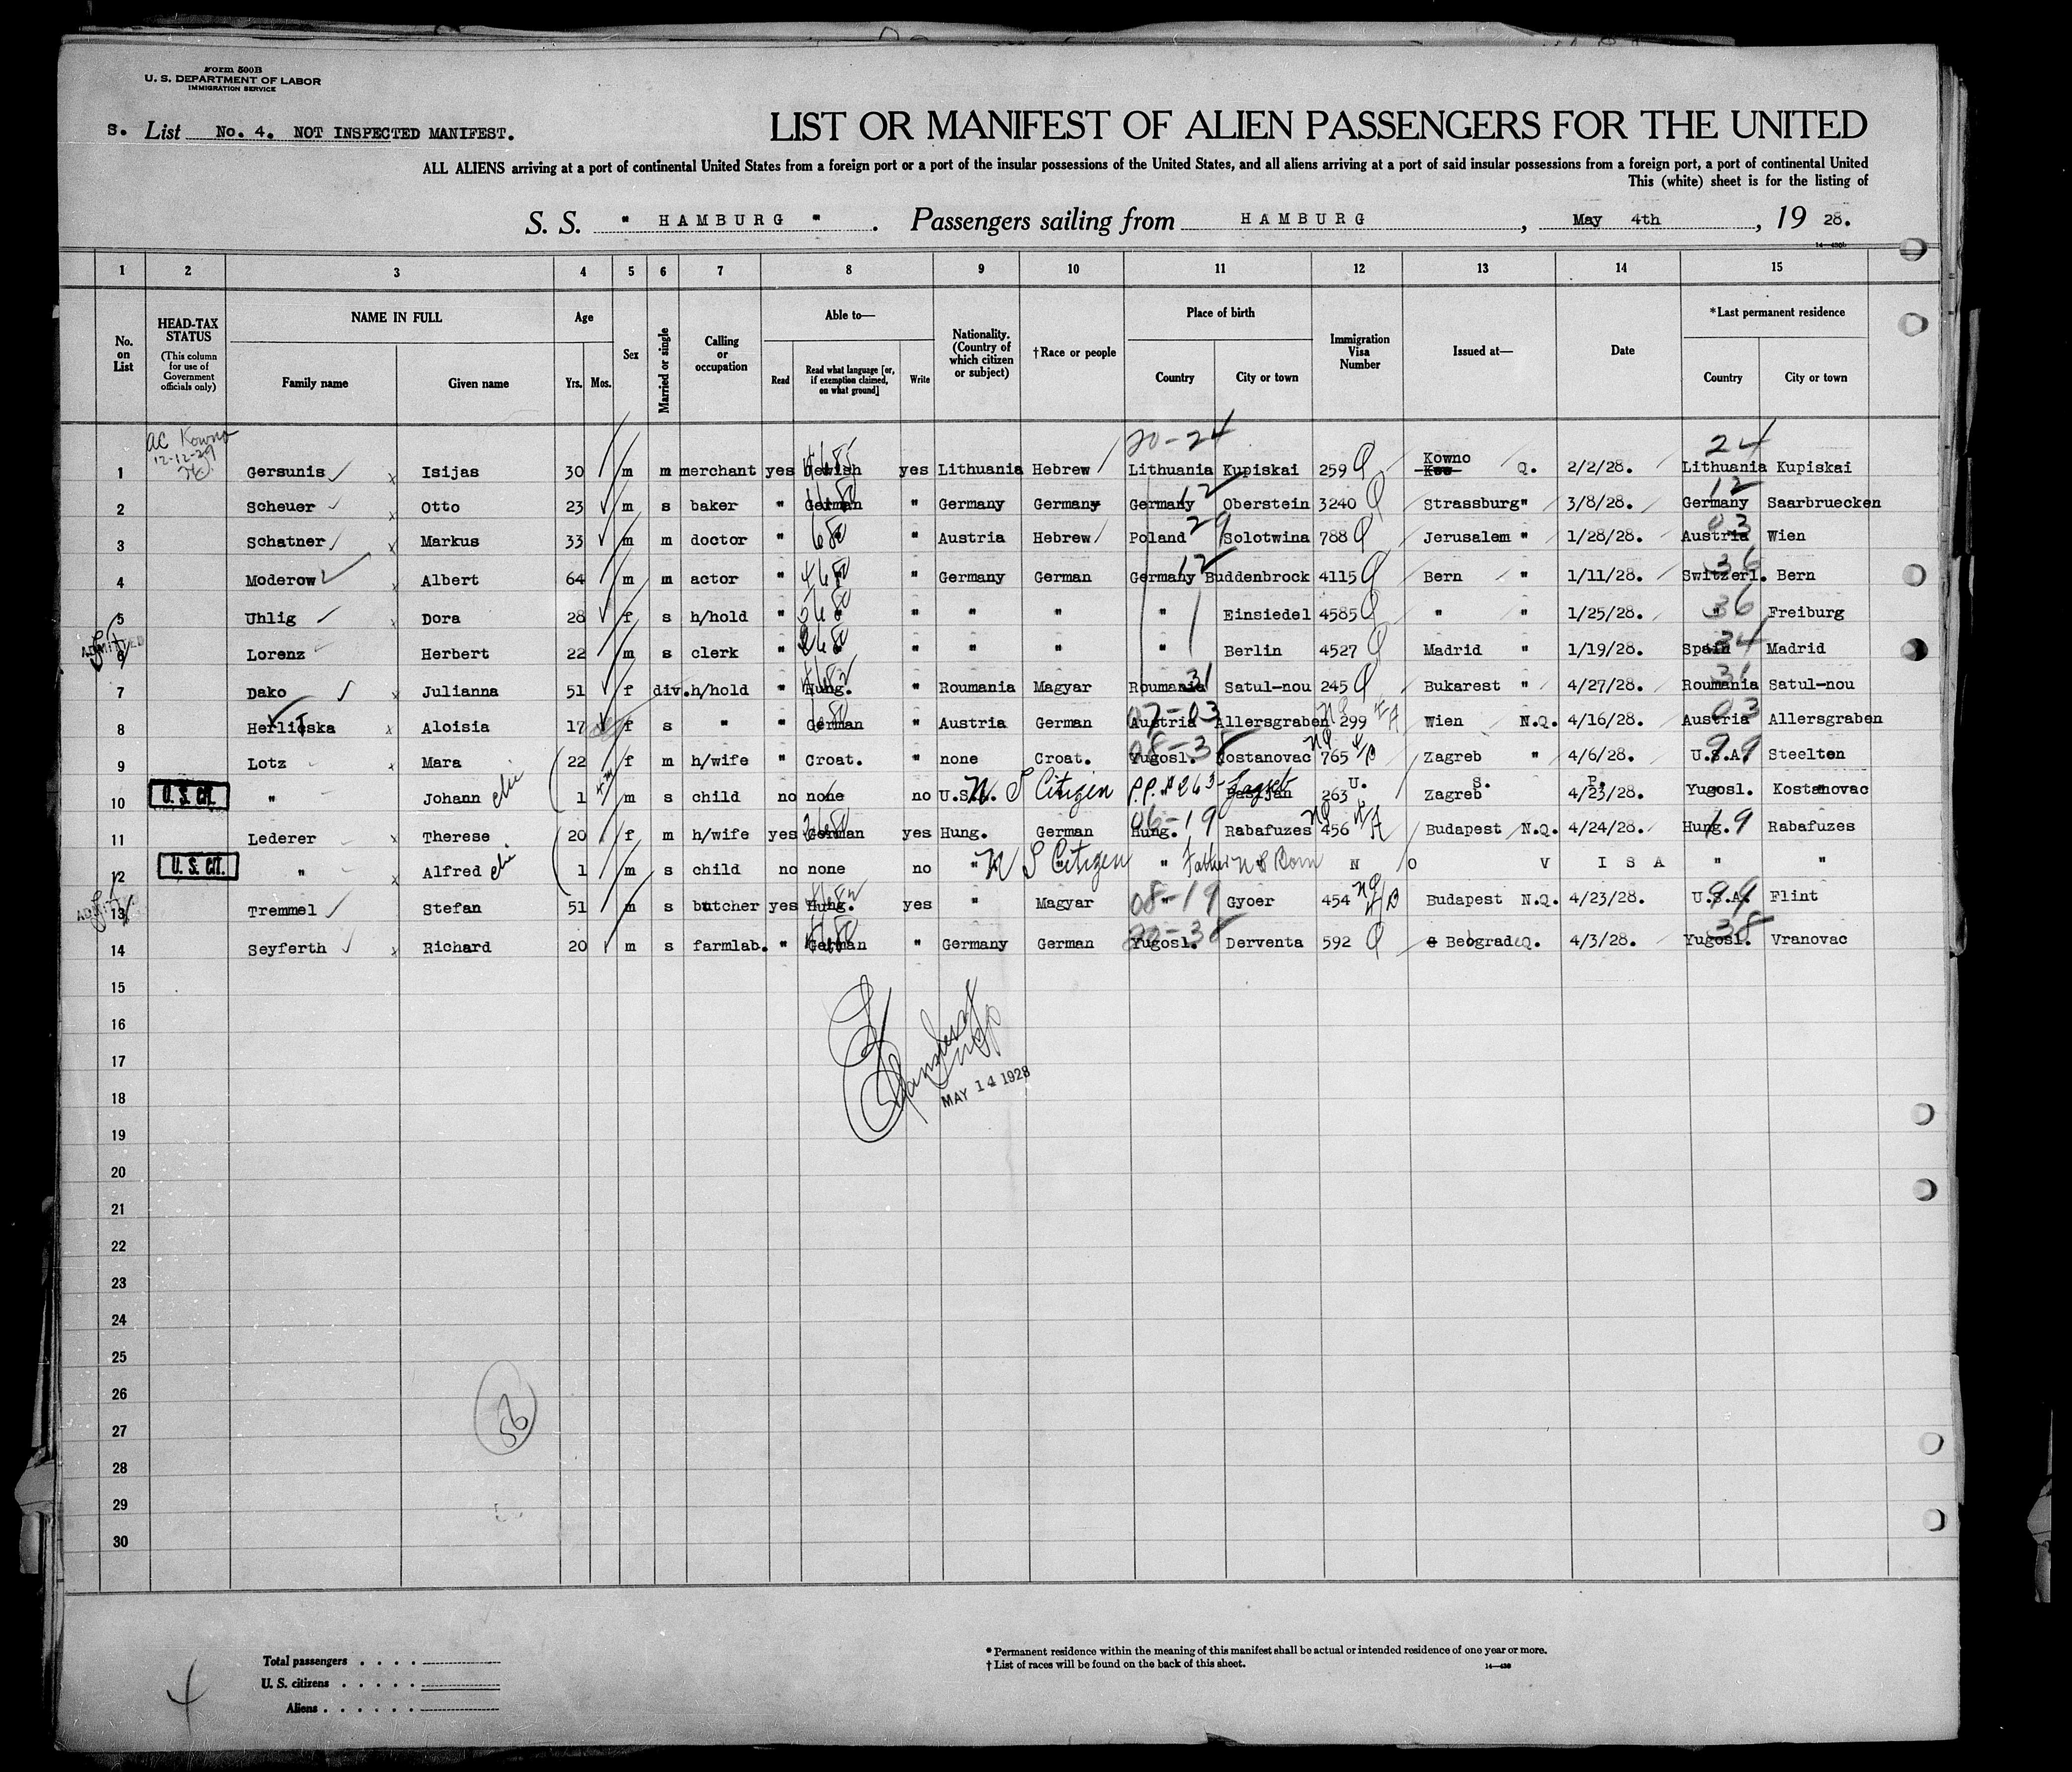 Form 500B
U. S. DEPARTMENT OF LABOR
IMMIGRATION SERVICE
S. List No. 4. NOT INSPECTED MANIFEST.
LIST OR MANIFEST OF ALIEN PASSENGERS FOR THE UNITED
ALL ALIENS arriving at a port of continental United States from a foreign port or a port of the insular possessions of the United States, and all aliens arriving at a port of said insular possessions from a foreign port, a port of continental United
This (white) sheet is for the listing of
S. S. " HAMBURG ". Passengers sailing from HAMBURG, May 4th, 19 28.
1 2 3 4 5 6 7 8 9 10 11 12 13 14 15
No. on List
HEAD-TAX STATUS (This column for use of Government officials only)
NAME IN FULL
Family name Given name
Age
Yrs. Mos.
Sex
Married or single
Calling or occupation
Able to—
Read Read what language [or, if exemption claimed, on what ground] Write
Nationality. (Country of which citizen or subject)
†Race or people
Place of birth
Country City or town
Immigration Visa Number
Issued at—
Date
*Last permanent residence
Country City or town
AC Kowno
12-12-29
20-24 24
1 Gersunis Isijas 30 m m merchant yes Jewish yes Lithuania Hebrew Lithuania Kupiskai 259 Q Kowno Q. 2/2/28. Lithuania Kupiskai
2 Scheuer Otto 23 m s baker " German " Germany Germany Germany 12 Oberstein 3240 Q Strassburg " 3/8/28. Germany 12 Saarbruecken
3 Schatner Markus 33 m m doctor " 680 " Austria Hebrew Poland 29 Solotwina 788 Q Jerusalem " 1/28/28. Austria 03 Wien
4 Moderow Albert 64 m m actor " " Germany German Germany 12 Buddenbrock 4115 Q Bern " 1/11/28. Switzerl. 36 Bern
5 Uhlig Dora 28 f s h/hold " " " " " Einsiedel 4585 Q " " 1/25/28. " 36 Freiburg
ADMITTED
6 Lorenz Herbert 22 m s clerk " " " " " Berlin 4527 Q Madrid " 1/19/28. Spain 34 Madrid
7 Dako Julianna 51 f div. h/hold " Hung. " Roumania Magyar Roumania 31 Satul-nou 245 Q Bukarest " 4/27/28. Roumania 31 Satul-nou
8 Herlitska Aloisia 17 f s " " German " Austria German Austria 07-03 Allersgraben 299 Wien N.Q. 4/16/28. Austria 03 Allersgraben
9 Lotz Mara 22 f m h/wife " Croat. " none Croat. Yugosl. 08-38 Kostanovac 765 Zagreb " 4/6/28. U.S.A. 99 Steelton
10 U. S. CIT. " Johann 1 m s child no none no U.S.A. U S Citizen P.P. # 263- Zagreb 263 U. Zagreb S. 4/23/28. P. Yugosl. Kostanovac
11 Lederer Therese 20 f m h/wife yes German yes Hung. German Hung. 06-19 Rabafuzes 456 Budapest N.Q. 4/24/28. Hung. 19 Rabafuzes
12 U. S. CIT. " Alfred 1 m s child no none no " U S Citizen " Father U S Born N O V I S A " "
13 Tremmel Stefan 51 m s butcher yes Hung. yes " Magyar 08-19 Gyoer 454 Budapest N.Q. 4/23/28. U.S.A. 99 Flint
14 Seyferth Richard 20 m s farmlab. " German " Germany German Yugosl. Derventa 592 Q Beograd Q. 4/3/28. Yugosl. 38 Vranovac
15
16
17
18
MAY 14 1928
19
20
21
22
23
24
25
26
27
28
29
30
Total passengers . . . .
U. S. citizens . . . . .
Aliens . . . . . .
* Permanent residence within the meaning of this manifest shall be actual or intended residence of one year or more.
† List of races will be found on the back of this sheet.